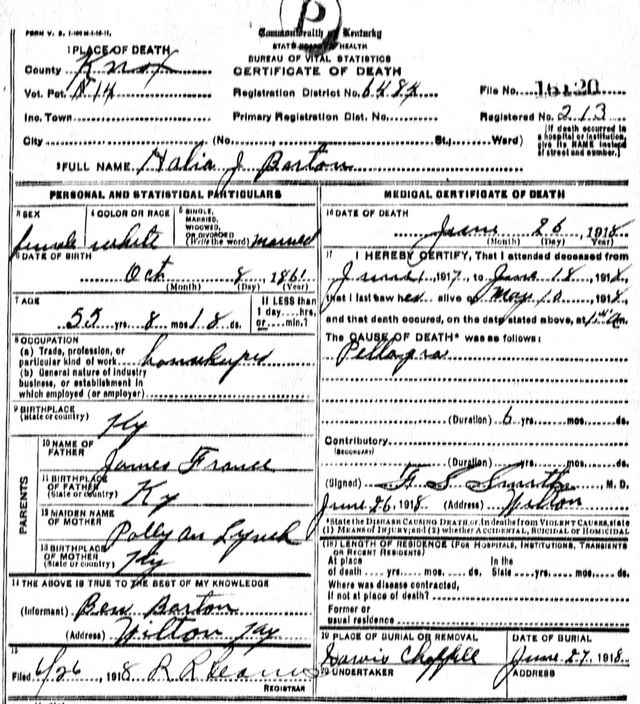 P
FORM V. S.
Commonwealth of Kentucky
STATE BOARD OF HEALTH
BUREAU OF VITAL STATISTICS
CERTIFICATE OF DEATH
1 PLACE OF DEATH
County Knox
Vot. Pct. N 14
Registration District No. 6484
File No. 16120
Inc. Town
Primary Registration Dist. No.
Registered No. 213
City (No. St.; Ward)
[If death occurred in a hospital or institution, give its NAME instead of street and number.]
2 FULL NAME Halia J Barton
PERSONAL AND STATISTICAL PARTICULARS
3 SEX female
4 COLOR OR RACE white
5 SINGLE, MARRIED, WIDOWED, OR DIVORCED (Write the word) married
6 DATE OF BIRTH
Oct 8, 1861
(Month) (Day) (Year)
7 AGE
55 yrs. 8 mos. 18 ds.
If LESS than 1 day....hrs. or....min.?
8 OCCUPATION
(a) Trade, profession, or particular kind of work housekeeper
(b) General nature of industry business, or establishment in which employed (or employer)
9 BIRTHPLACE (State or country) Ky
PARENTS
10 NAME OF FATHER James France
11 BIRTHPLACE OF FATHER (State or country) Ky
12 MAIDEN NAME OF MOTHER Polly an Lynch
13 BIRTHPLACE OF MOTHER (State or country) Ky
14 THE ABOVE IS TRUE TO THE BEST OF MY KNOWLEDGE
(Informant) Ben Barton
(Address) Wilton Ky
15
Filed 6/26, 1918 R R
REGISTRAR
MEDICAL CERTIFICATE OF DEATH
16 DATE OF DEATH
June 26, 1918
(Month) (Day) (Year)
17 I HEREBY CERTIFY, That I attended deceased from
June 1, 1917, to June 18, 1918,
that I last saw her alive on May 10, 1918,
and that death occured, on the date stated above, at 1 m.
The CAUSE OF DEATH* was as follows:
Pellagra
(Duration) 6 yrs. mos. ds.
Contributory
(SECONDARY)
(Duration) yrs. mos. ds.
(Signed) F S Smith, M. D.
June 26, 1918 (Address) Wilton
*State the DISEASE CAUSING DEATH or, in deaths from VIOLENT CAUSES, state (1) MEANS OF INJURY; and (2) whether ACCIDENTAL, SUICIDAL or HOMICIDAL
(18) LENGTH OF RESIDENCE (FOR HOSPITALS, INSTITUTIONS, TRANSIENTS OR RECENT RESIDENTS)
At place of death yrs. mos. ds. In the State yrs. mos. ds.
Where was disease contracted, if not at place of death?
Former or usual residence
19 PLACE OF BURIAL OR REMOVAL
DATE OF BURIAL
June 27, 1918
20 UNDERTAKER
ADDRESS